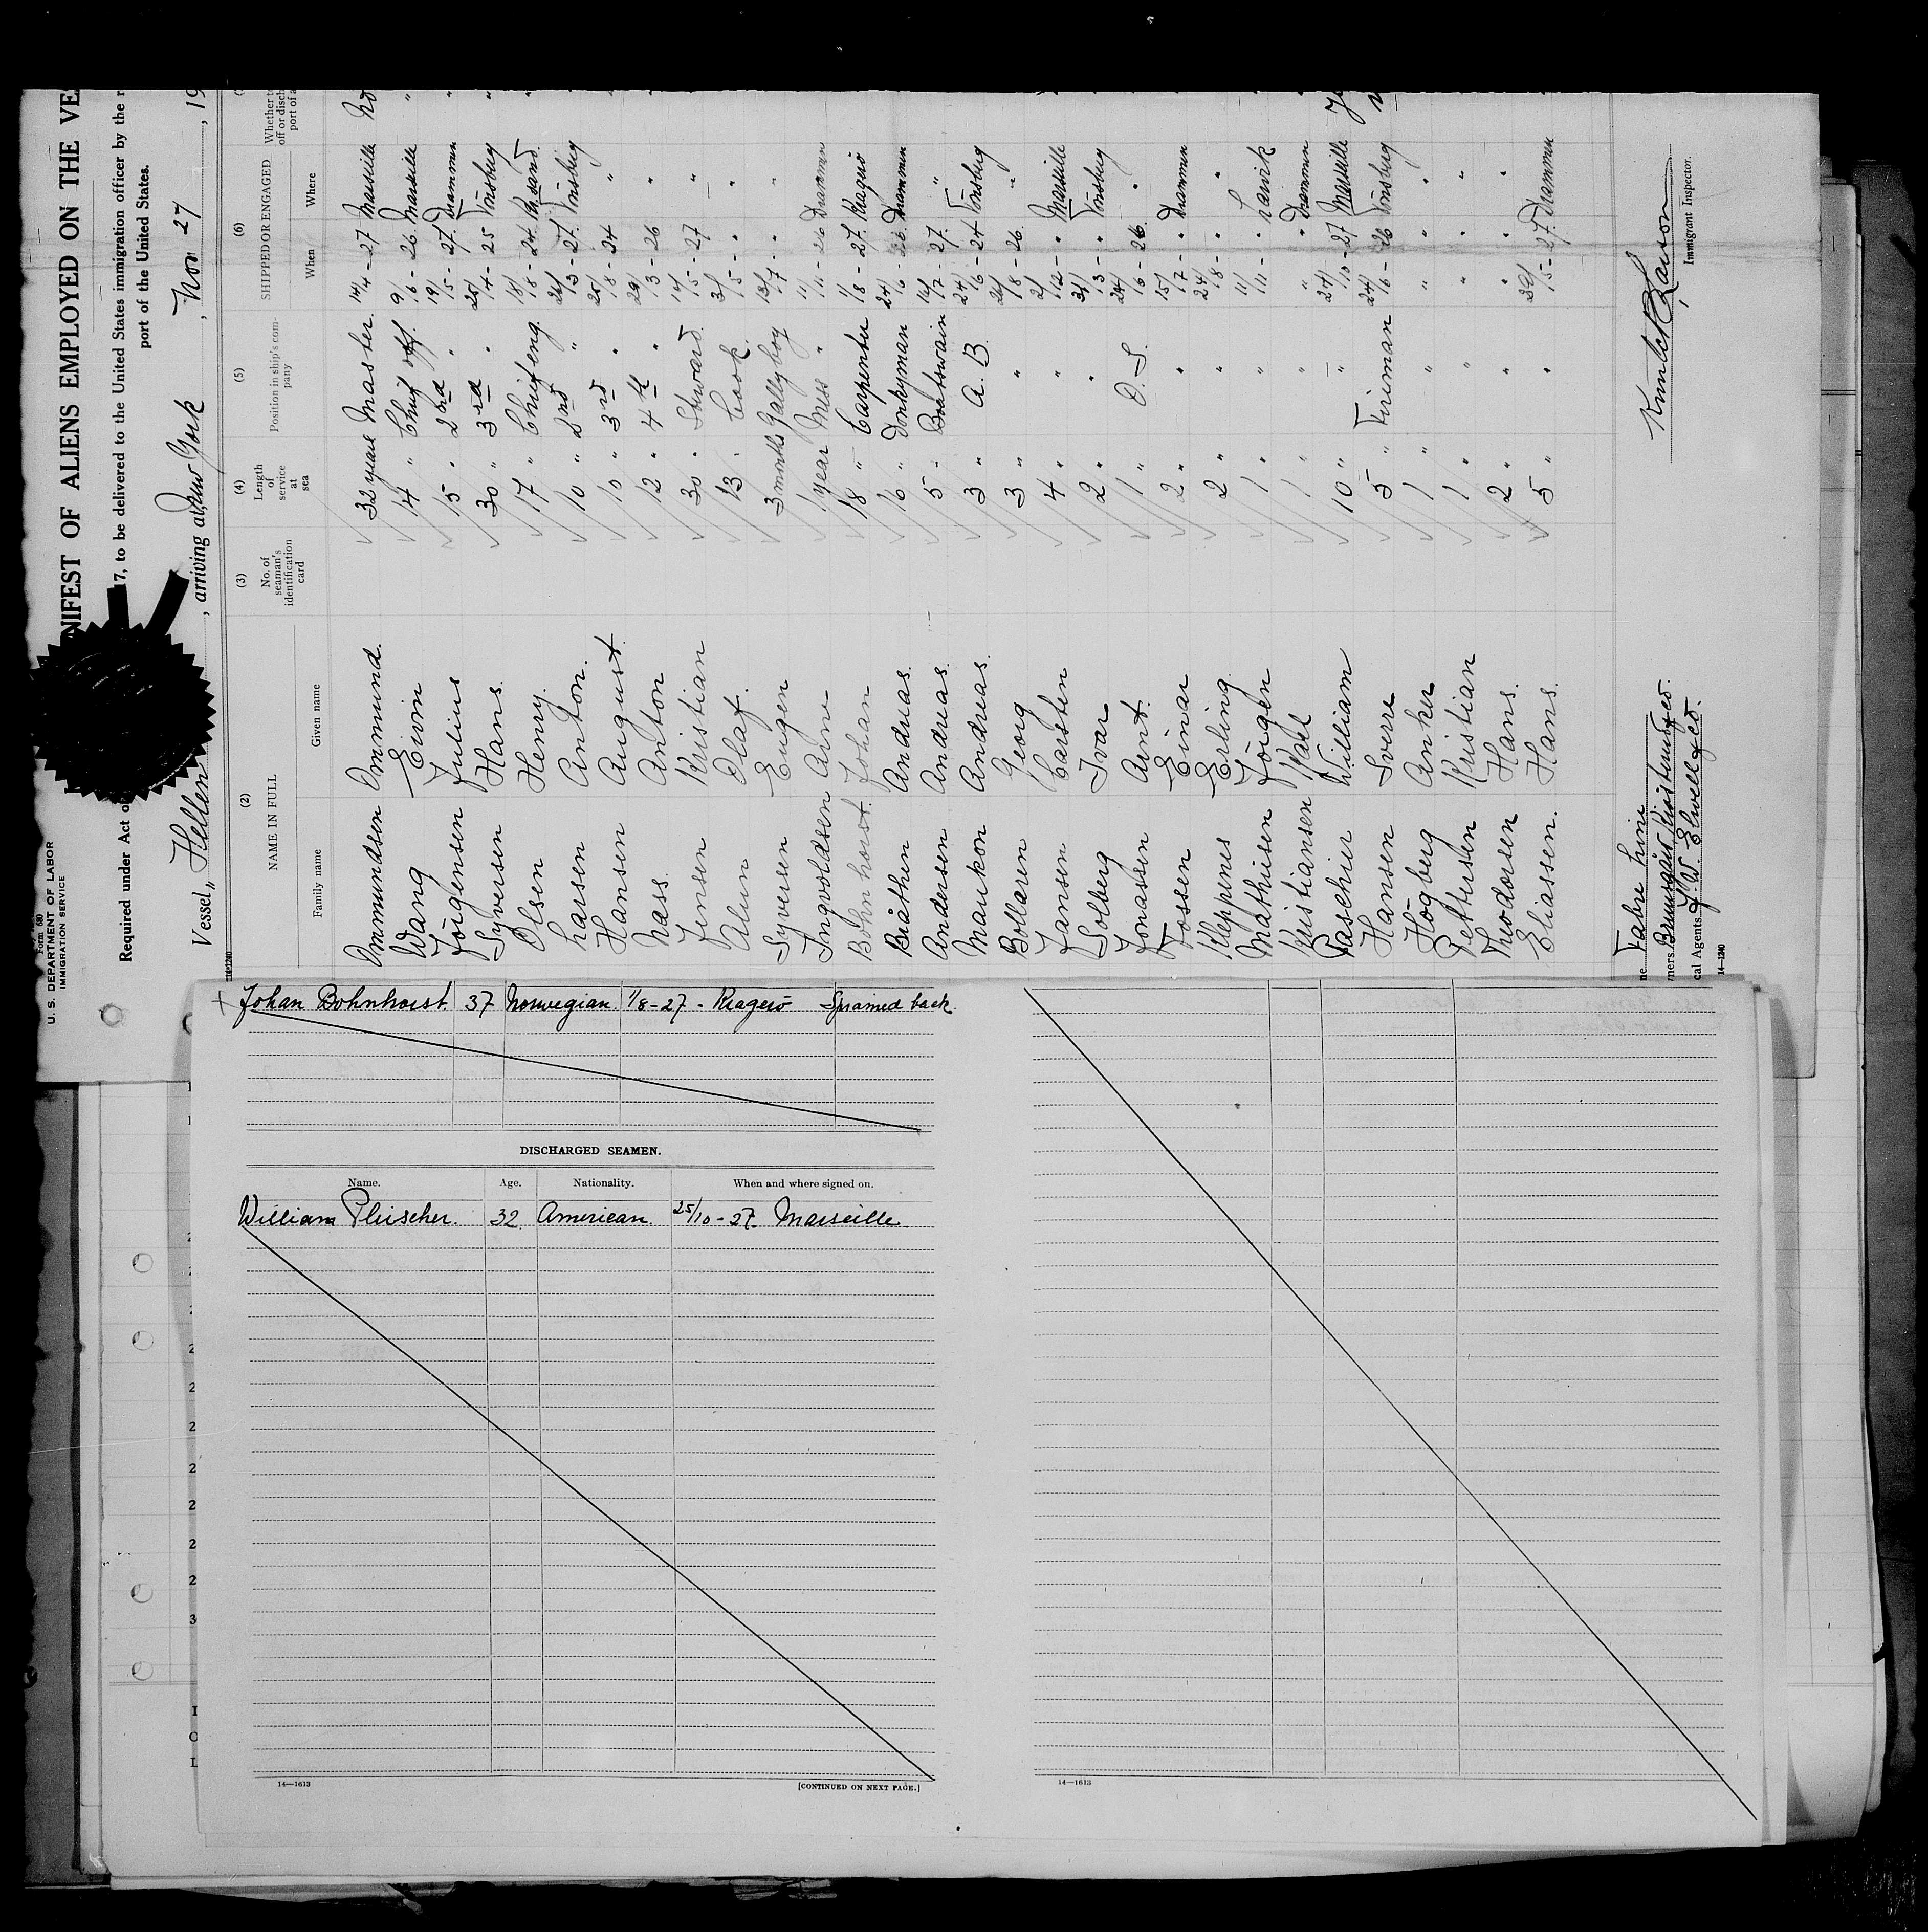 Form 680
U. S. DEPARTMENT OF LABOR
IMMIGRATION SERVICE
NIFEST OF ALIENS EMPLOYED ON THE VES
Required under Act o 17, to be delivered to the United States immigration officer by the r
port of the United States.
Vessel „ Hellen , arriving at New York , Nov 27 , 19
14—1240
(2) (3) (4) (5) (6)
NAME IN FULL No. of seaman's identification card Length of service at sea Position in ship's company SHIPPED OR ENGAGED Whether t off or disch port of a
Family name Given name When Where
Ommundsen Ommund. 32 years Master. 14/4 - 27 Marseille No
Wang Eivin 14 " Chief off. 9/6 - 26. Marseille "
Jörgensen Julius 15 " 2nd " 19/5 - 27. Drammen "
Syversen Hans. 30 " 3rd " 25/4 - 25 Tönsberg "
Olsen Henry. 17 " Chief eng. 18/8 - 24. Krsand. "
Larsen Anton. 10 " 2nd " 24/3 - 27. Tönsberg
Hansen August. 10 " 3rd " 25/8 - 24 "
Nass. Anton 12 " 4th " 29/3 - 26 "
Jensen Kristian 30 " Steward. 14/5 - 27 "
Alun Olaf. 13 " Cook. 3/5 - " "
Syversen Eugen 3 months Gallyboy 13/7 - " "
Ingvoldsen Arne 1 year Mess " 11/11 - 26 Drammen
Bohnhorst. Johan 18 " Carpenter 1/8 - 27. Kragerö
Bråthen Andreas. 16 " Donkyman 24/6 - 26. Drammen
Andersen Andreas. 5 " Boatswain 14/7 - 27. "
Maukon Andreas. 3 " A. B. 24/6 - 24 Tönsberg
Bollaren Georg 3 " " 24/8 - 26. "
Jansen Carsten 4 " " 2/12 - " Marseille
Solberg Ivar 2 " " 31/3 - " Tönsberg
Jonassen Arnt. 1 " O. S. 24/6 - 26. "
Fossen Einar 2 " " 15/7 - " Drammen
Kleppenes Erling 2 " " 24/8 - " "
Mathiisen Jörgen 1 " " 11/11 - " Larvik
Kristiansen Karl 1 " " " " Drammen
Faschier William 10 " " 24/10 - 27 Marseille
Hansen Sverre 5 " Fireman 24/6 - 26 Tönsberg
Högberg Anker 1 " " " " "
Pettersen Kristian 1 " " " " "
Theodorsen Hans. 2 " " " " "
Eliassen. Hans. 5 " " 29/5 - 27. Drammen
ne Fabre Line
ners
cal Agents J. W. Elwell & Co.
14—1240
Immigrant Inspector.
+ Johan Bohnhorst. 37 Norwegian. 1/8-27 - Kragerö Sprained back.
DISCHARGED SEAMEN.
Name. Age. Nationality. When and where signed on.
William Pleischer. 32. American. 25/10-27. Marseille
14—1613 [CONTINUED ON NEXT PAGE.]
14—1613